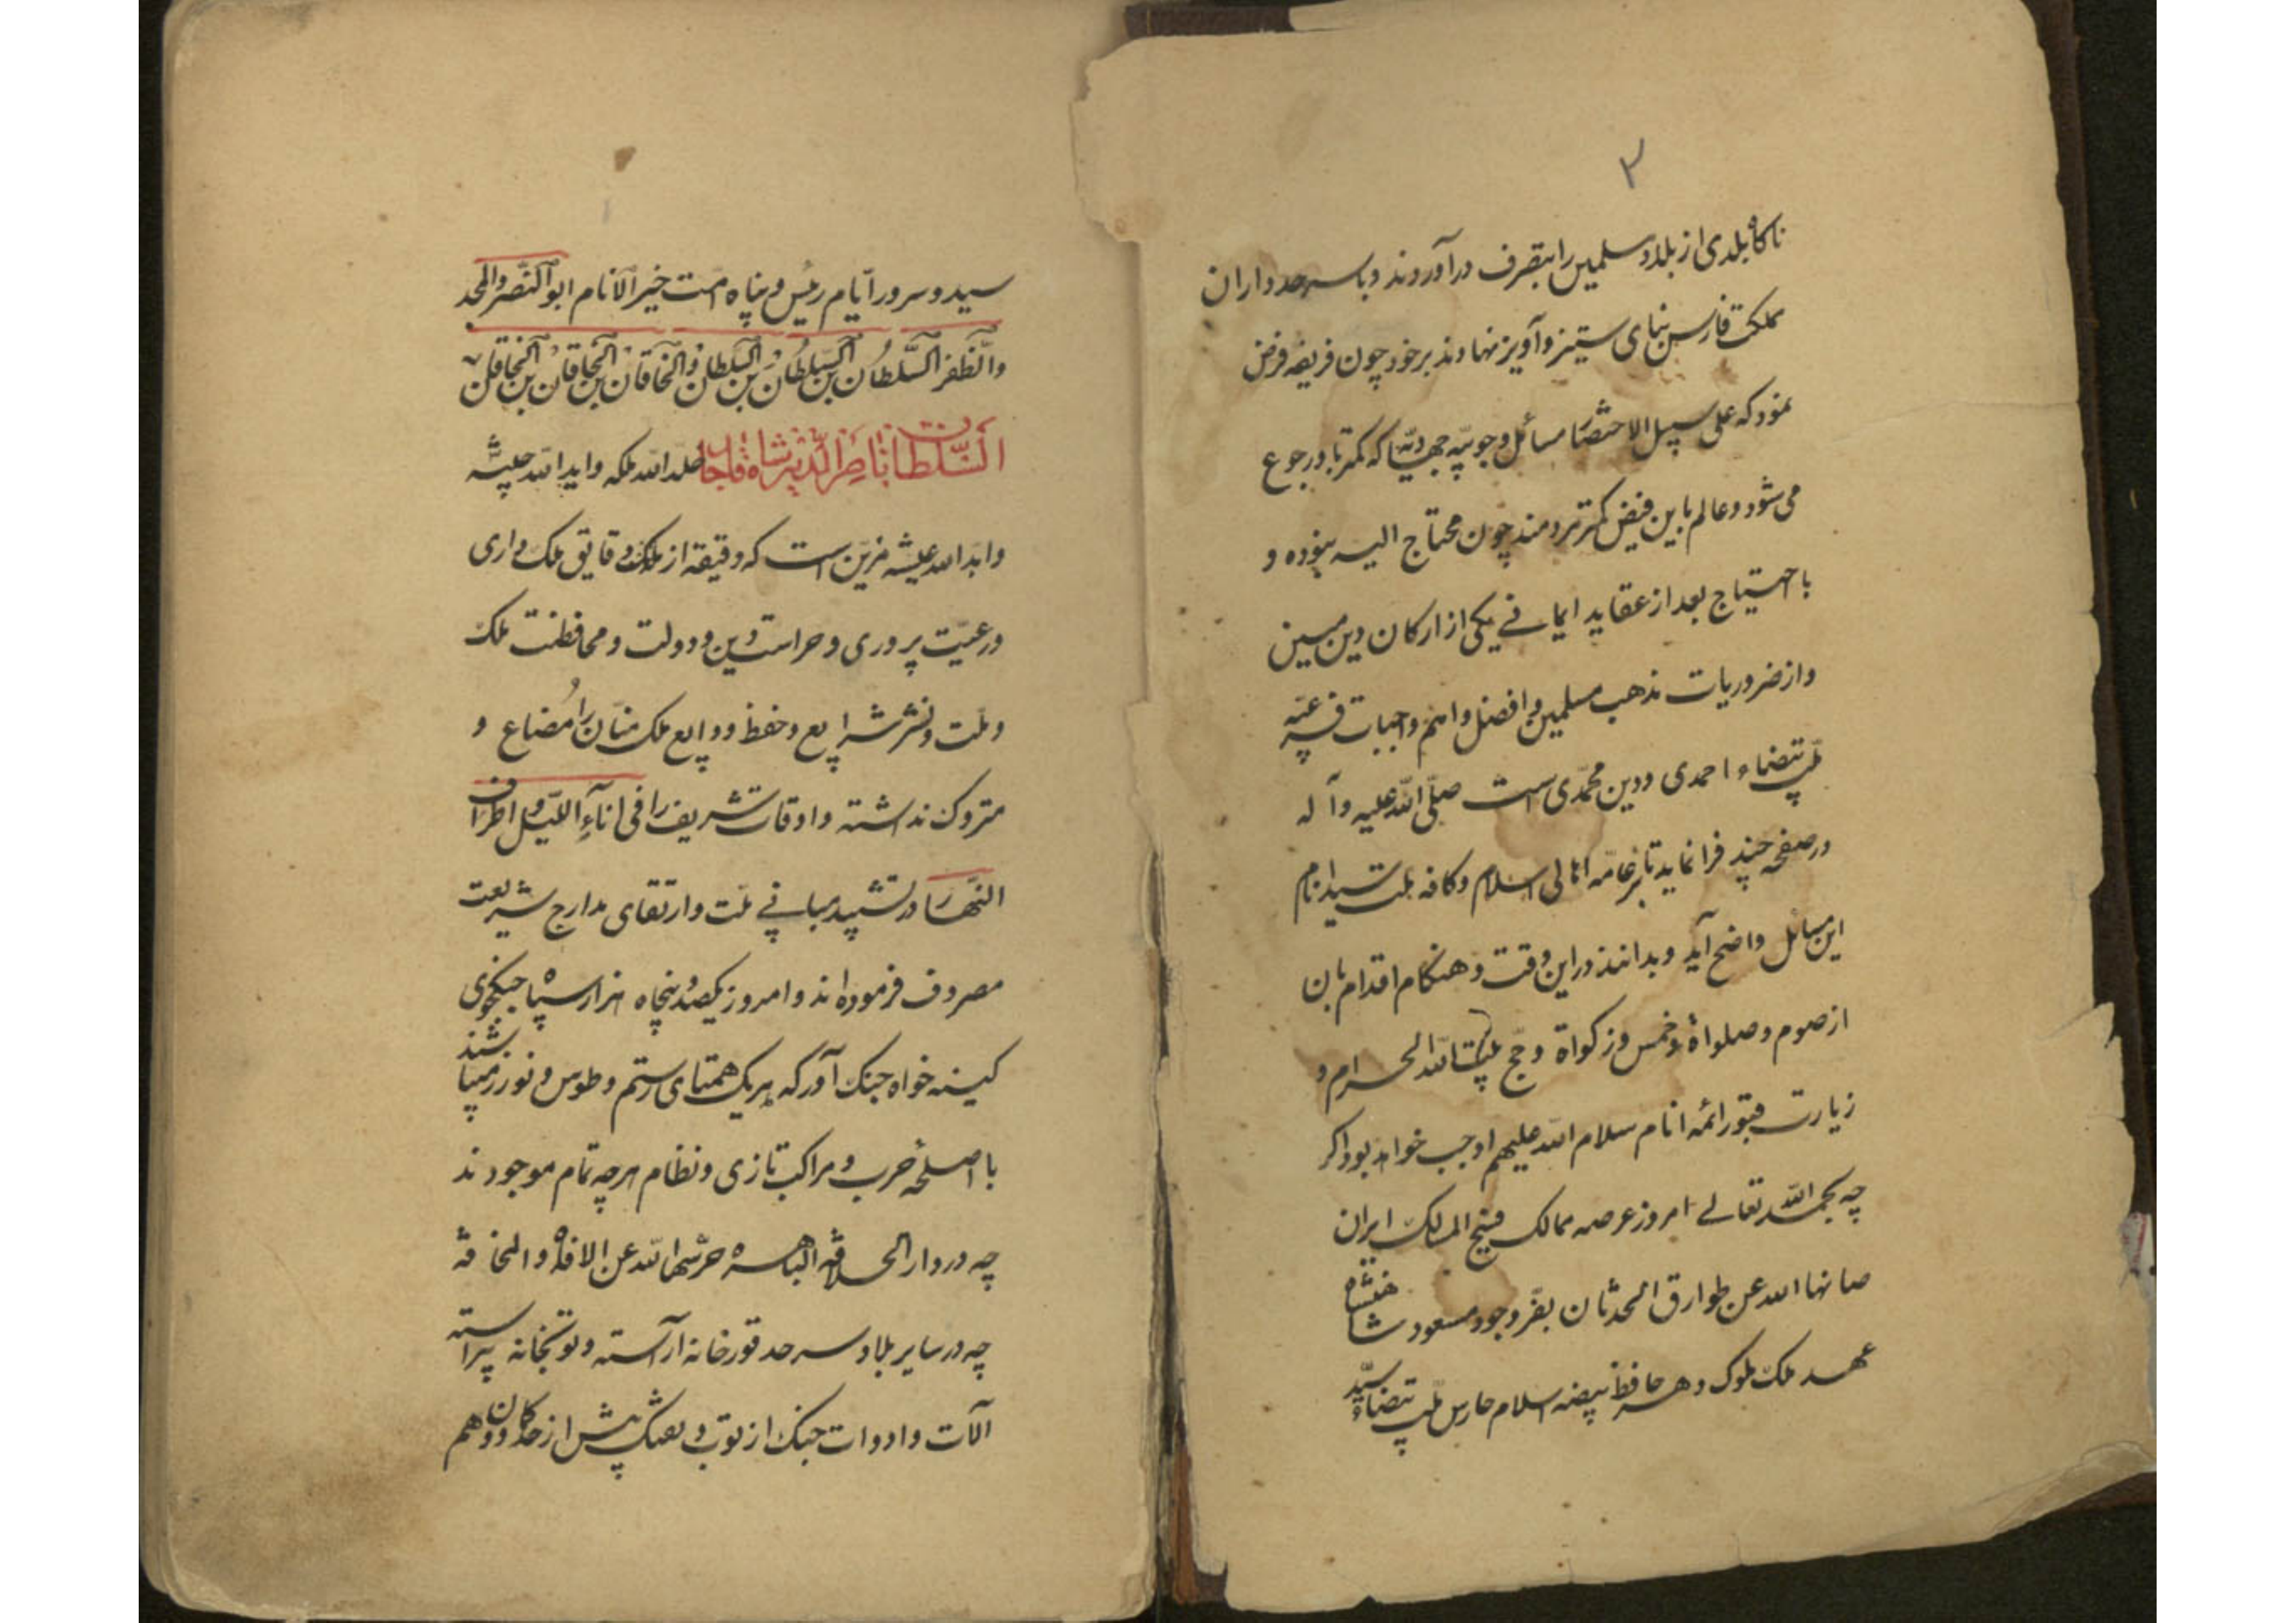 ۳
ناکاه بلدی از بلاد مسلمین را بتصرف درآوروند و با سرحدداران
مملکت فارس بنای ستیز و آویز نهادند برخود چون فریضه فرض
نمود که علی سبیل الاختصار مسائل وجوبیّه جهادیّه را که کمتر باو رجوع
می شود و عالم باین فیض کمتر بردمند چون محتاج الیه بنوده و
با احتیاج بعد از عقاید ایمانی یکی از ارکان دین مبین
و از ضروریات مذهب مسلمین و افضل و اهم واجبات فرعیّه
ملّت بیضاء احمدی و دین محمّدی است صلّی اللّه علیه و آله
در صفحه چند فرا نماید تا بر عامّه اهالی اسلام و کافه ملت سیّد انام
این مسائل واضح آید و بدانند در این وقت و هنکام اقدام بان
از صوم و صلواة و خمس و زکواة و حج بیت اللّه الحرام و
زیارت قبور ائمه انام سلام اللّه علیهم اوجب خواهد بود اکر
چه بحمد اللّه تعالی امروز عرصه ممالک فسیح المسالک ایران
صانها اللّه عن طوارق الحدثان بفرّ وجود مسعود شاهنشاه
عهد ملک ملوک دهر حافظ بیضه اسلام حارس ملّت بیضاء سیّد
سید و سرور ایّام رئیس و پناه امّت خیر الانام ابو النّصر والمجد
والظّفر السّلطان بن السّلطان بن السّلطان و الخاقان بن الخاقان بن الخاقان
السّلطان ناصر الدّین شاه قاجار خلّد اللّه ملکه و اید اللّه جیشه
و ابّد اللّه عیشه مزیّن است که دقیقه از دقایق ملک داری
و رعیّت پروری و حراست دین و دولت و محافظت ملک
و ملّت و نشر شرایع و حفظ ودایع ملک منّان را مُضاع و
متروک نداشته و اوقات شریف را فی اناءِ اللّیل و اطراف
النّهار در تشیید مبانی ملّت و ارتقای مدارج شریعت
مصروف فرموده اند و امروز یکصد و پنجاه هزار سپاه جنکجوی
کینه خواه جنک آور که هر یک همتای رستم و طوس و نوذر میباشند
با اصلحهٔ حرب و مراکب تازی و نظام هر چه تمام موجودند
چه در دار الخلافه الباهره حرسها اللّه عن الافة و المخافة
چه در سایر بلاد و سرحد قورخانه آراسته و توپخانه پیراسته
آلات و ادوات جنک از توپ و تفنک بیش از حد و وهم